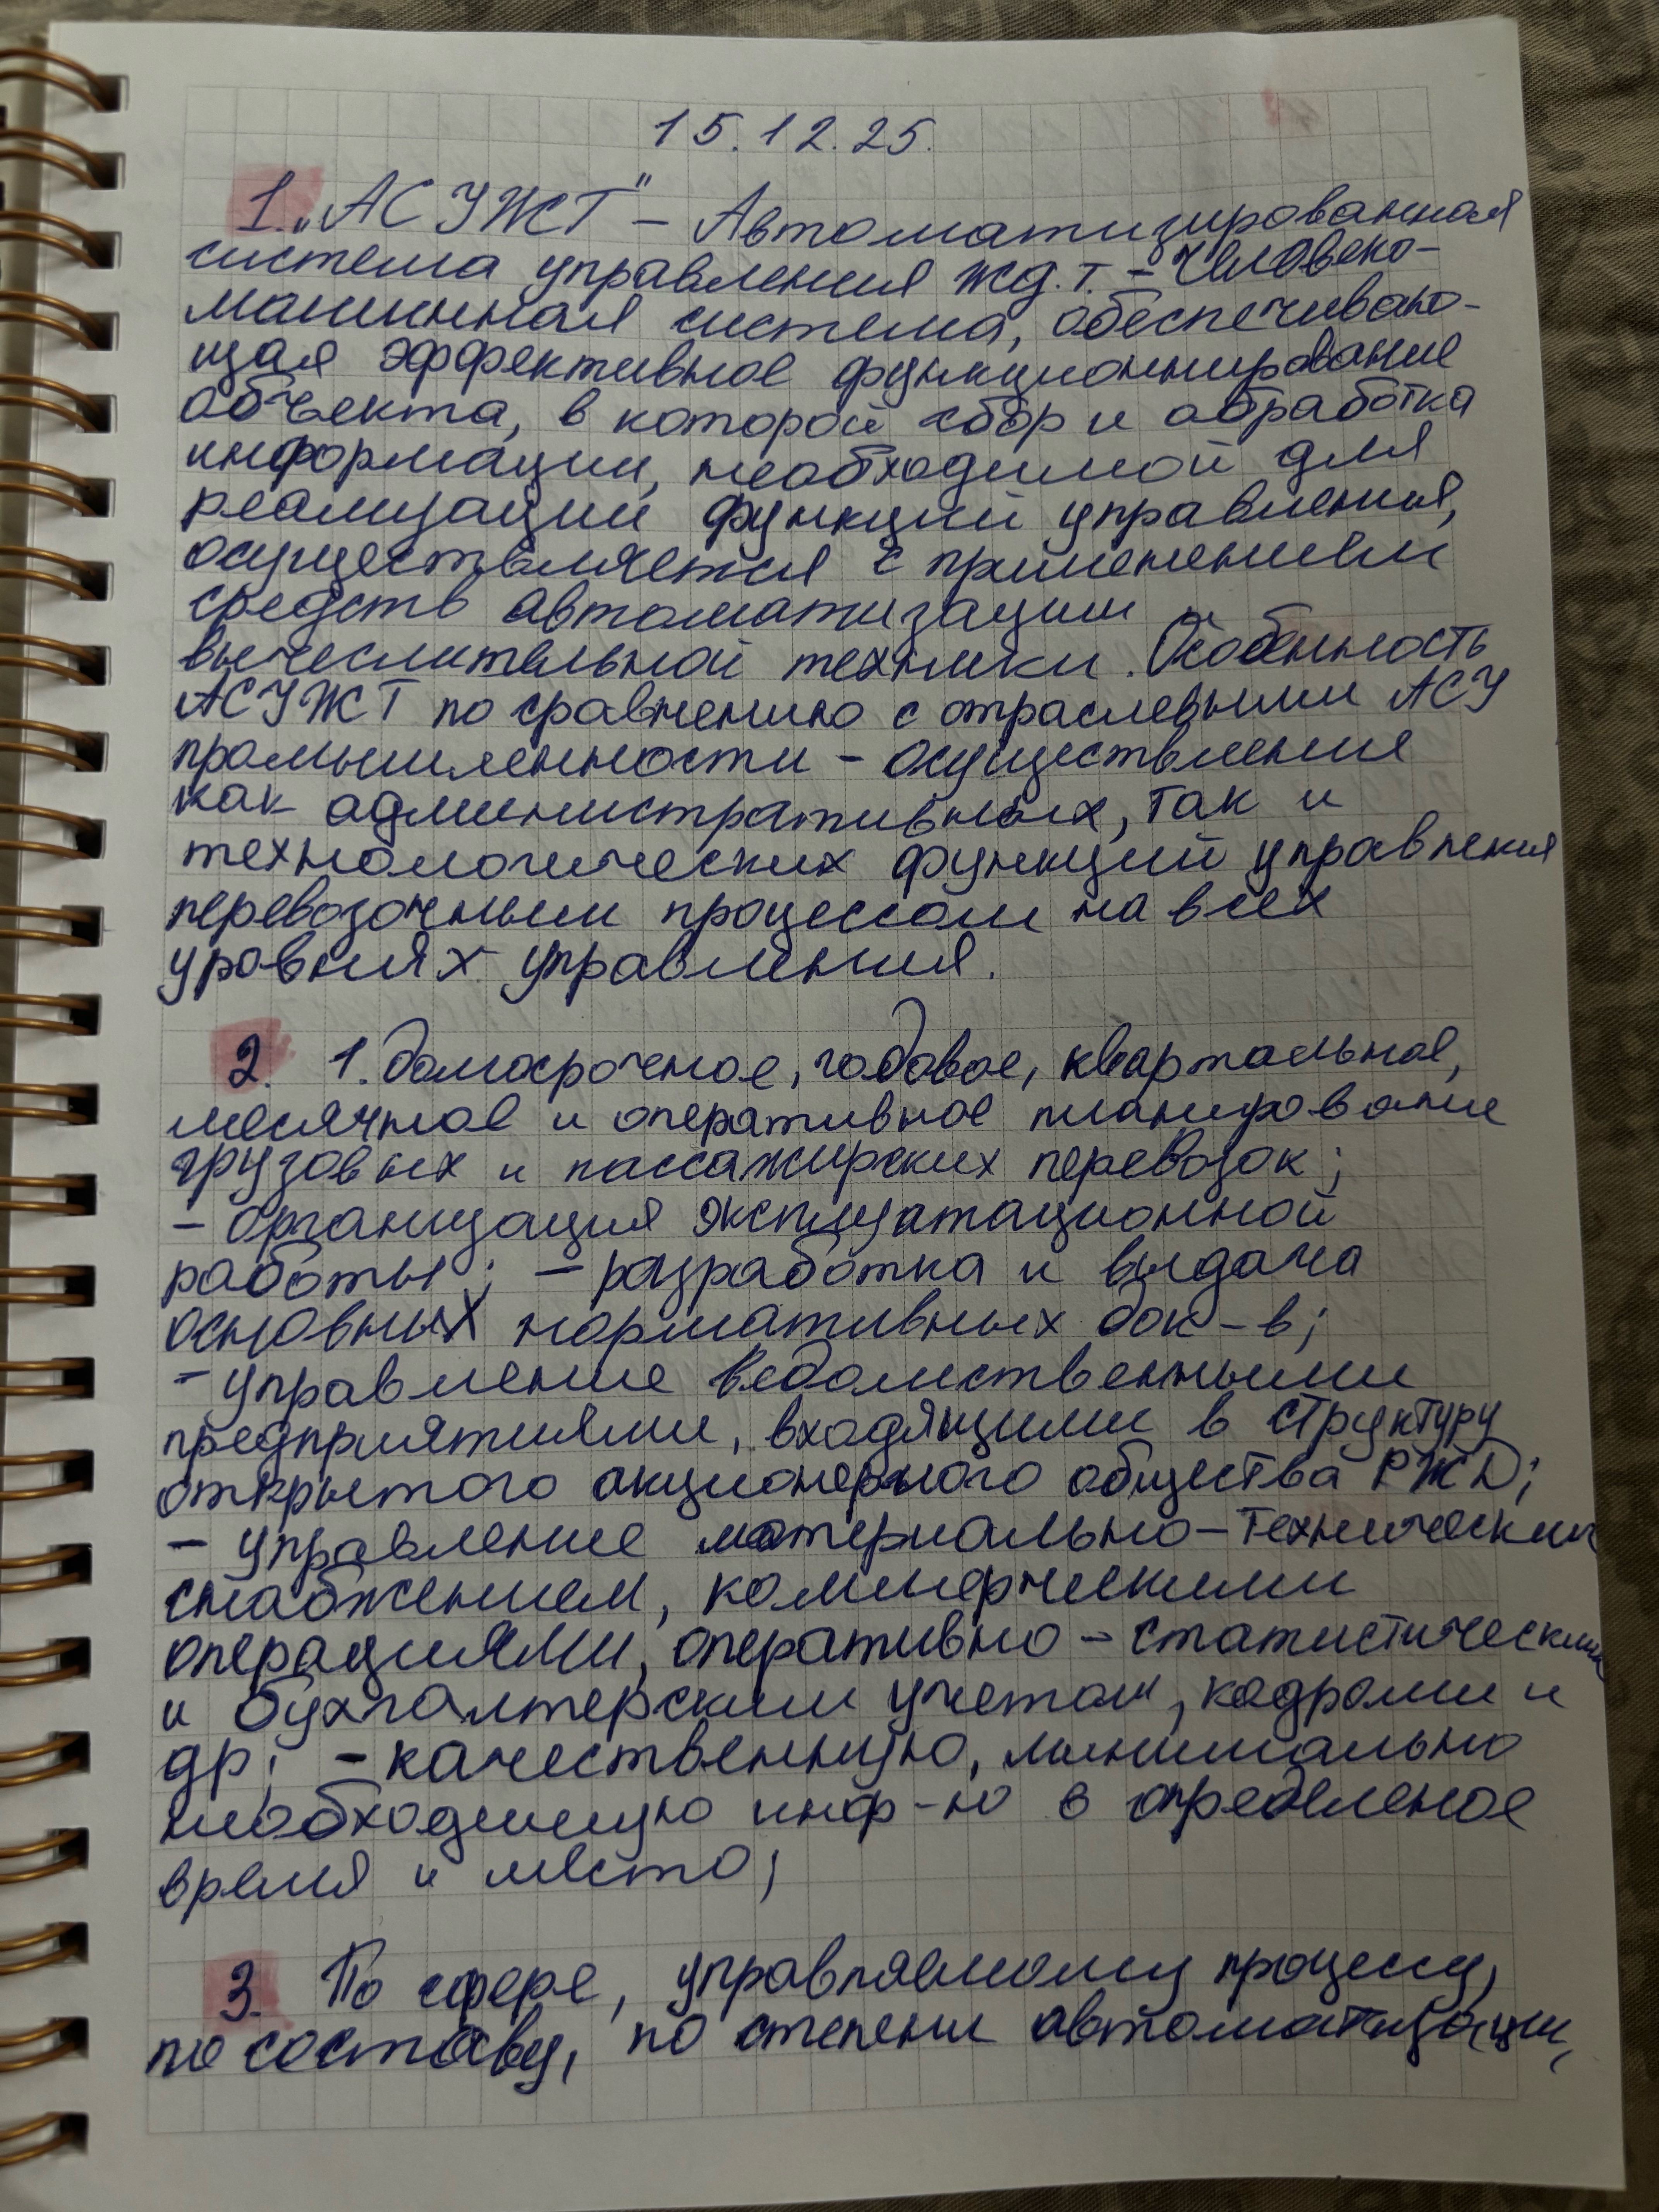 15.12.25.
1. „АСУЖТ" – Автоматизированная
система управления жд.т. – человеко-
машинная система, обеспечиваю-
щая эффективное функционнирование
объекта, в которой сбор и обработка
информации, необходимой для
реализации функций управления,
осуществляется с применением
средств автоматизации
вычеслительной техники. Особенность
АСУЖТ по сравнению с отраслевыми АСУ
промышленности – осуществление
как административных, так и
технологических функций управления
перевозочным процессом на всех
уровнях управления.
2. 1. долгосрочное, годовое, квартальное,
месячное и оперативное планирование
грузовых и пассажирских перевозок;
– организация эксплуатационной
работы; – разработка и выдача
основных нормативных док-в;
– управление ведомственными
предприятиями, входящими в структуру
открытого акционерного общества РЖД;
– управление материально-техническим
снабжением, коммерческими
операциями, оперативно-статистическим
и бухгалтерским учетом, кадрами и
др; – качественную, минимально
необходимую инф-ю в определеное
время и место;
3. По сфере, управляемому процессу,
по составу, по степени автоматизации,